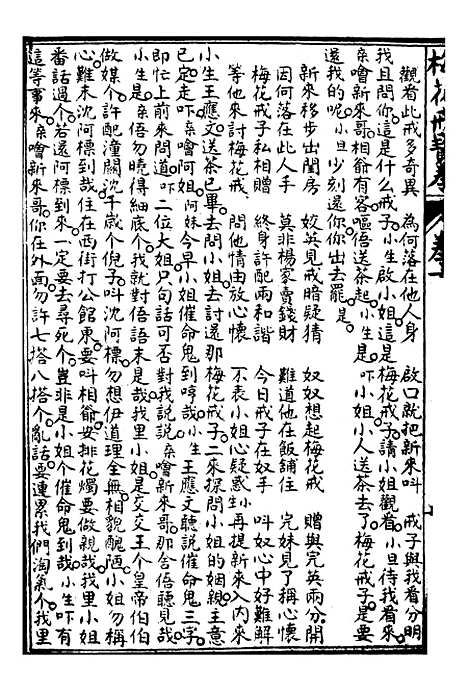 梅花戒寶卷 卷下
觀看此戒多奇異 為何落在他人身 啟口就把新來叫 戒子與我看分明
我且問你這是什么戒子小生啟小姐這是梅花戒子請小姐觀看小旦待我看來
亲噲新來哥相爺有客嘔倍送茶起小生是吓小姐小人送茶去了梅花戒子是要
還我的呢小旦少刻還你你出去罷是
新來移步出閨房 姣英見戒暗疑猜 奴奴想起梅花戒 贈與完英兩分開
因何落在此人手 莫非楊家賣錢財 難道他在飯舖住 完妹見了稱心懷
梅花戒子私相贈 終身許配兩和諧 今日戒子在奴手 叫奴心中好難解
等他來討梅花戒 問他情由放心懷 不表小姐心疑惑 再提新來入內來
小生王應文送茶已畢去問小姐去討還那梅花戒子二來探問小姐的姻親主意
已定走吓亲噲阿姐阿妹今早小姐催命鬼到哉小生王應文聽說催命鬼三字
即忙上前來問道吓二位大姐只句話可否對我說說亲噲新來哥那舍倍聽見哉
小生是亲倍勿曉得細底个我就對倍語末是哉我里小姐是交交王个皇帝伯伯
做媒个許配潼關沈千歲个倪子叫沈阿標勿想伊道理全無相貌醜陋小姐勿稱
心難末沈阿標到哉住在西街打公館東要叫相爺安排花燭要做親哉我里小姐
番話過个若還阿標到來一定要去尋死个豈非是小姐个催命鬼到哉小生吓有
這等事來亲噲新來哥你在外面勿許七搭八搭个亂話要連累我們淘氣个我里